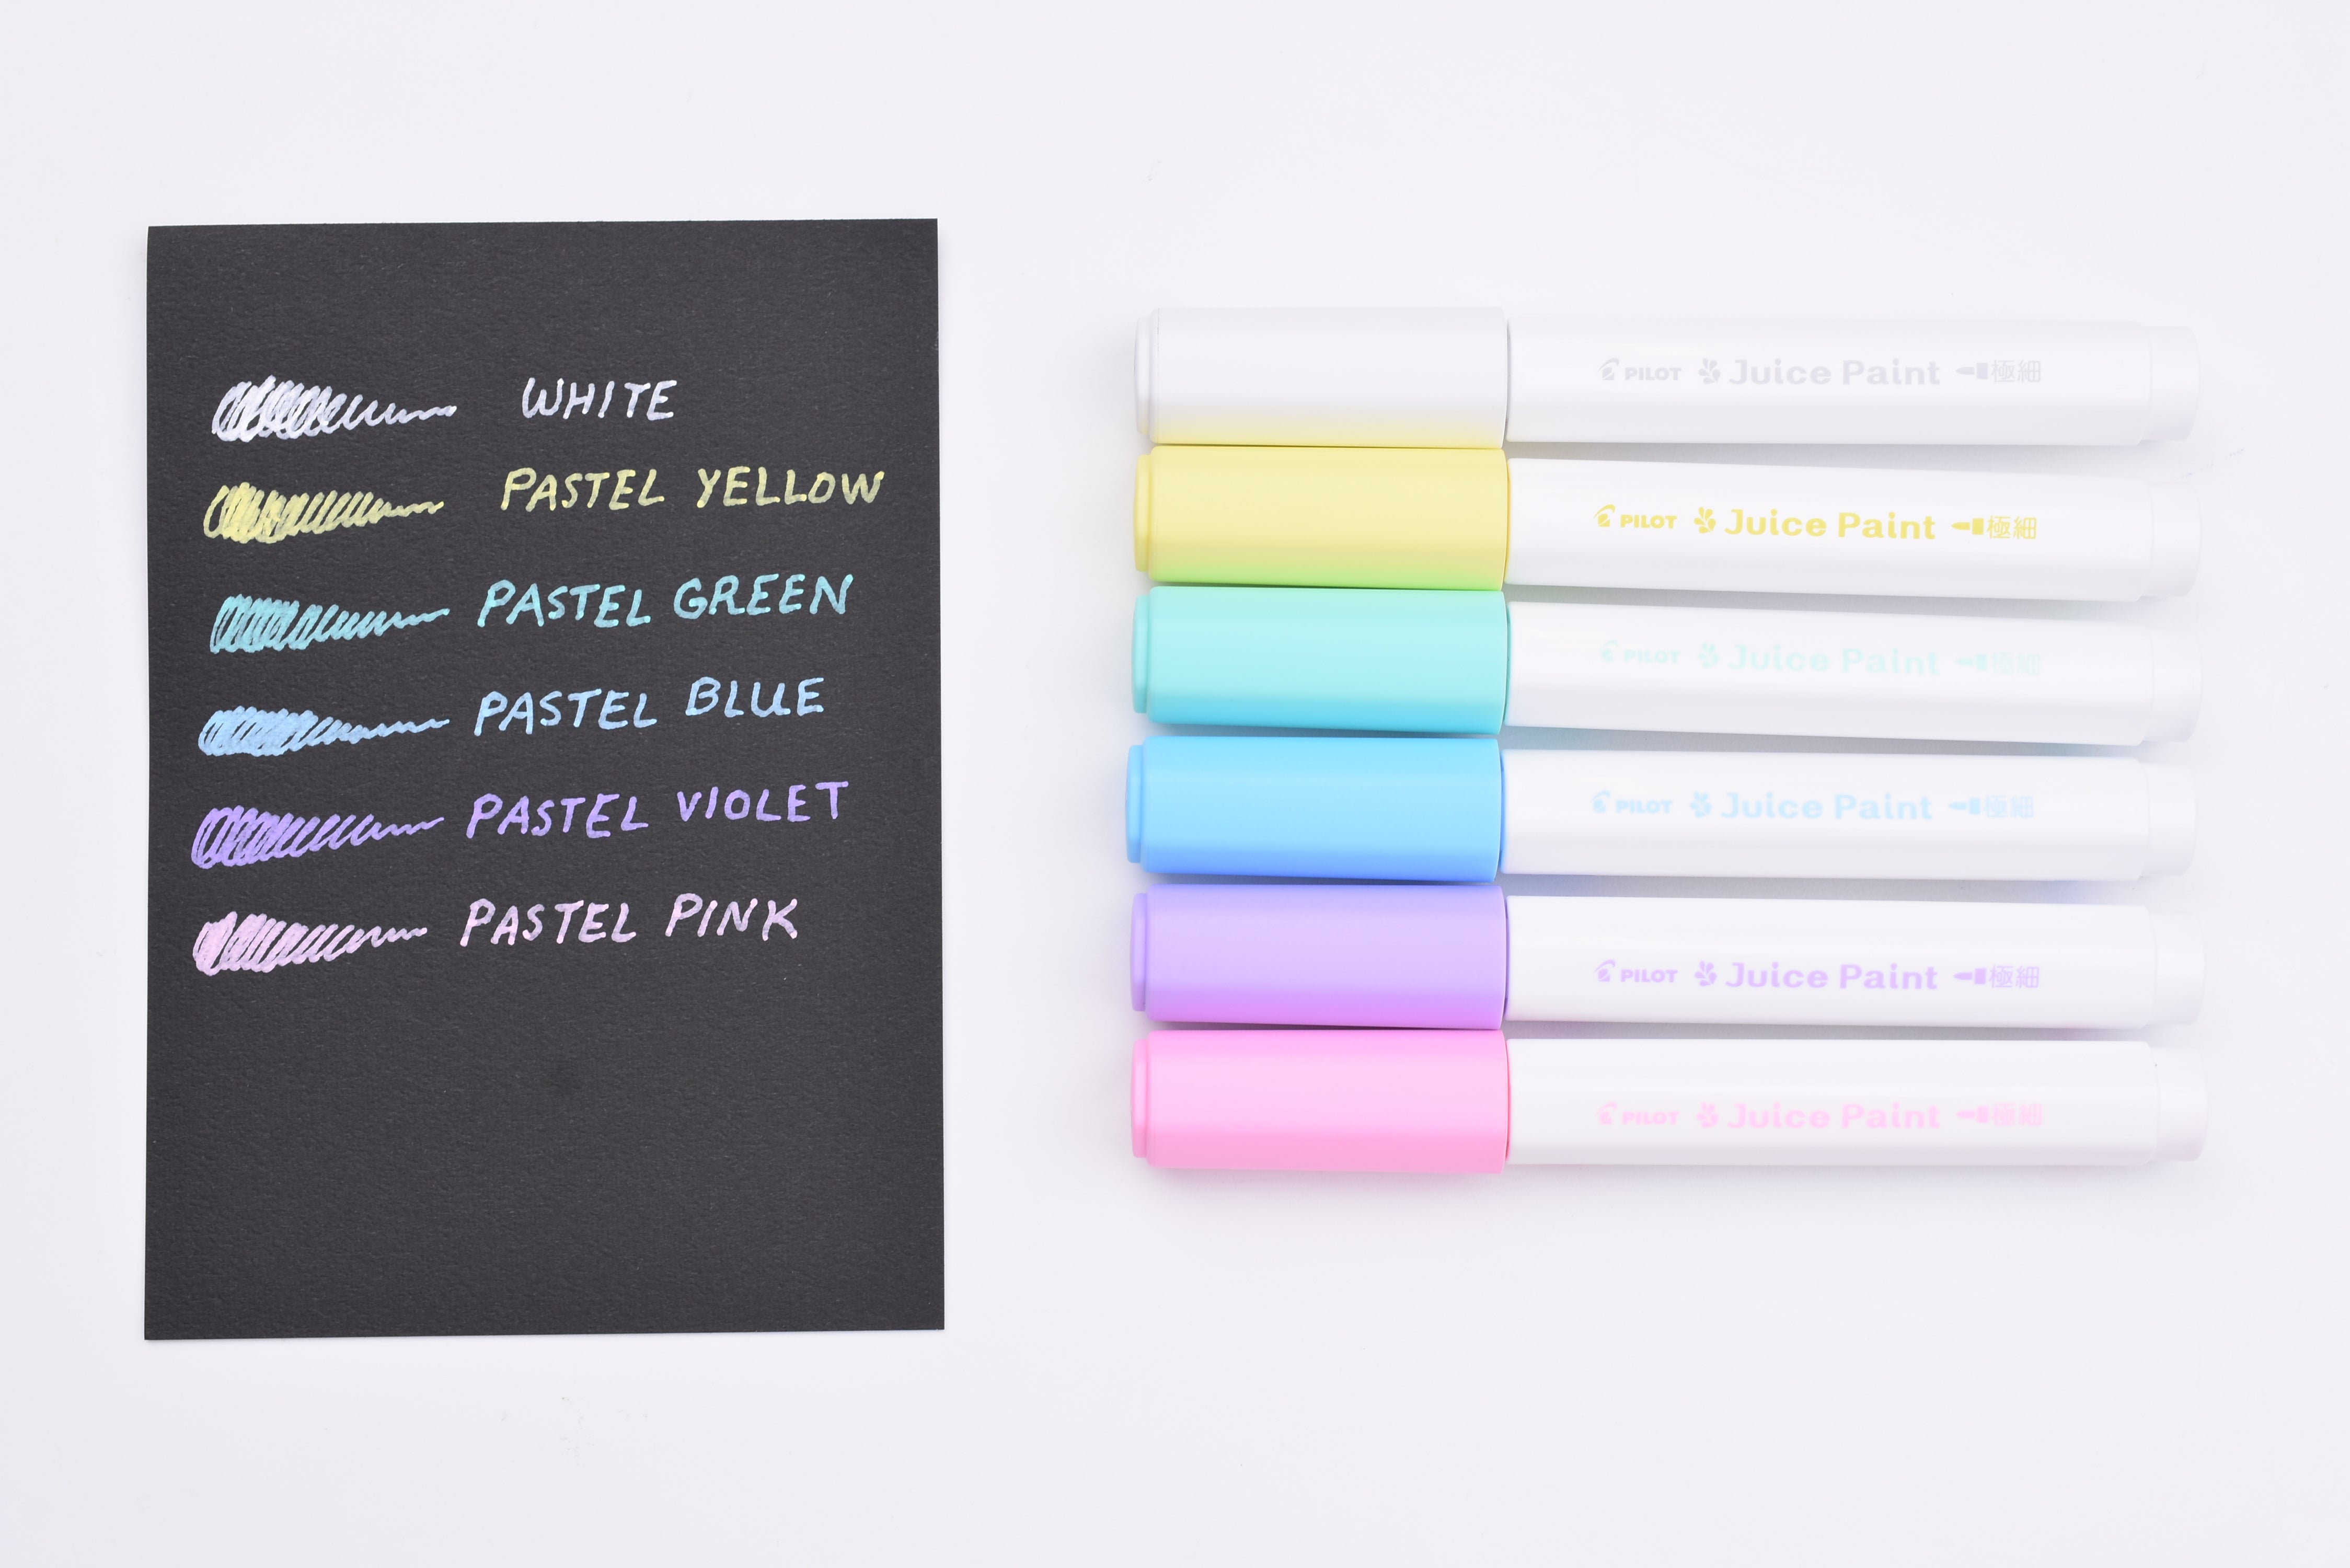 WHITE
PASTEL YELLOW
PASTEL GREEN
PASTEL BLUE
PASTEL VIOLET
PASTEL PINK
PILOT Juice Paint 極細
PILOT Juice Paint 極細
PILOT Juice Paint 極細
PILOT Juice Paint 極細
PILOT Juice Paint 極細
PILOT Juice Paint 極細